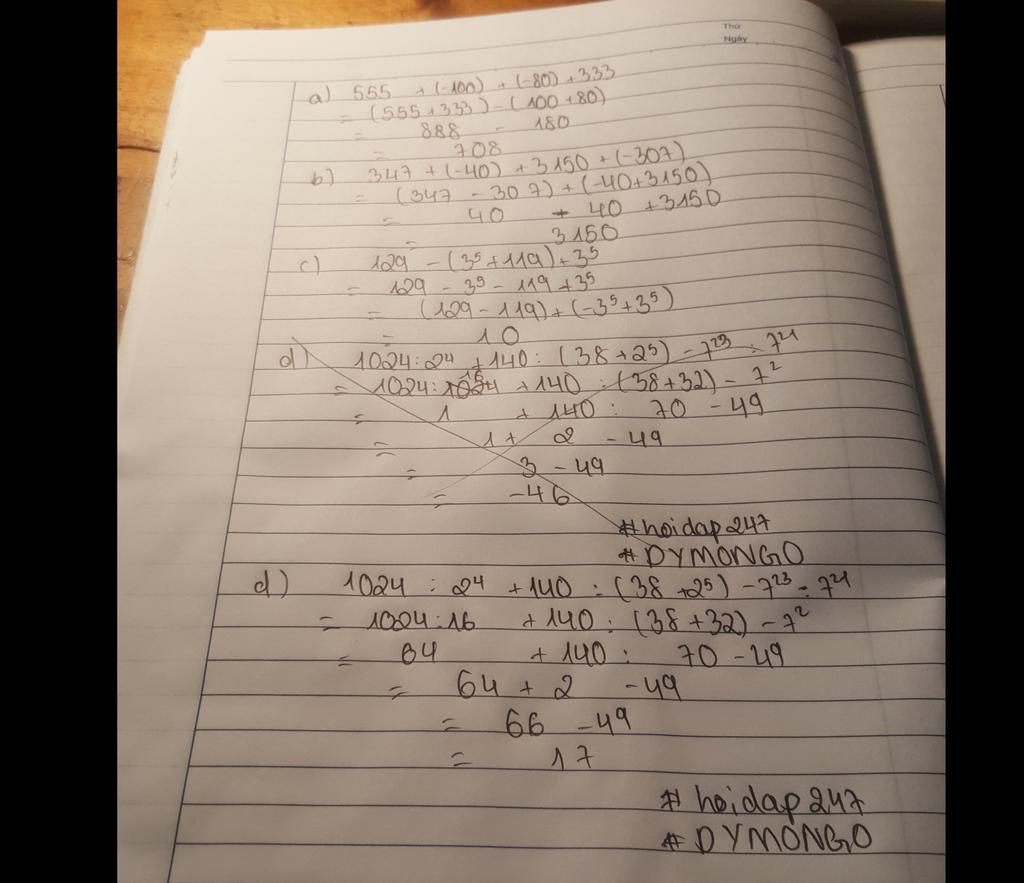 Thứ
Ngày
a) 555 + (-100) + (-80) + 333
= (555 + 333) - (100 + 80)
= 888 - 180
= 708
b) 347 + (-40) + 3150 + (-307)
= (347 - 307) + (-40 + 3150)
= 40 - 40 + 3150
= 3150
c) 129 - (3⁵ + 119) + 3⁵
= 129 - 3⁵ - 119 + 3⁵
= (129 - 119) + (-3⁵ + 3⁵)
= 10
d) 1024 : 2⁴ + 140 : (38 + 2⁵) - 7²³ : 7²¹
= 1024 : 16 + 140 : (38 + 32) - 7²
= 1 + 140 : 70 - 49
= 1 + 2 - 49
= 3 - 49
= -46
#hoidap247
#DYMONGO
d) 1024 : 2⁴ + 140 : (38 + 2⁵) - 7²³ : 7²¹
= 1024 : 16 + 140 : (38 + 32) - 7²
= 64 + 140 : 70 - 49
= 64 + 2 - 49
= 66 - 49
= 17
#hoidap247
#DYMONGO